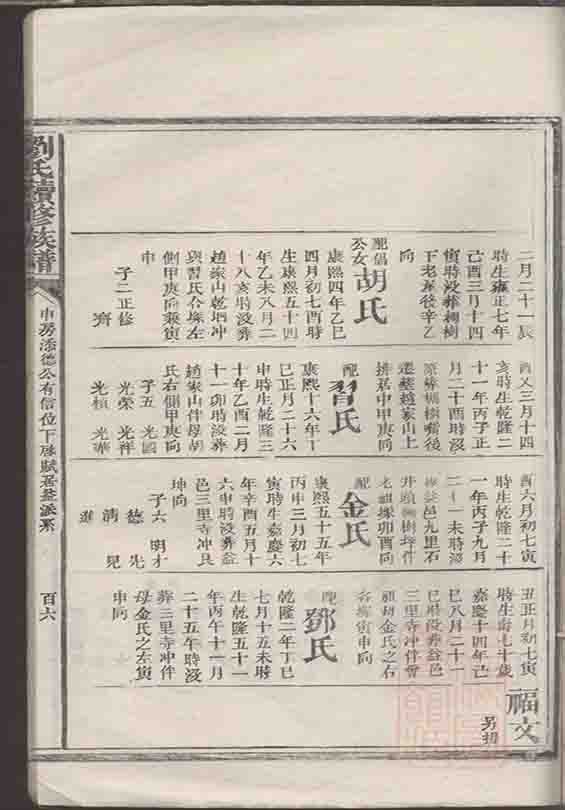 二月二十一辰
時生雍正七年
己酉三月十四
寅時沒葬桐樹
下老墓後辛乙
向
配倡
公女
胡氏
康熙四年乙巳
四月初七酉時
生康熙五十四
年乙未八月二
十八亥時沒葬
趙家山乾坤冲
與習氏合塚左
側甲庚向兼寅
申
子二正修
齊
酉又三月十四
亥時生乾隆二
十一年丙子正
月二十酉時沒
原葬桐樹嘴後
遷葬趙家山上
排居中甲庚向
配
習氏
康熙十六年丁
巳正月二十六
申時生乾隆三
十年乙酉二月
初十卯時沒葬
趙家山件母胡
氏右側甲庚向
子五 光國
光榮 光祥
光楨 光華
酉六月初七寅
時生乾隆二十
一年丙子九月
二十一未時沒
葬益邑九里石
井頭桐樹坪件
老祖塚卯酉向
配
金氏
康熙五十五年
丙申三月初七
寅時生嘉慶六
年辛酉五月十
六申時沒葬益
邑三里寺冲艮
坤向
子六 明才
德 先
清 見
進
丑正月初七寅
時生壽七十歲
嘉慶十四年己
巳八月二十一
巳時沒葬益邑
三里寺冲件曾
祖母金氏之右
寅申向
配
鄧氏
乾隆二年丁巳
七月十五未時
生乾隆五十一
年丙午十一月
二十五午時沒
葬三里寺冲件
母金氏之左寅
申向
福文
另招
劉氏續修族譜
申房添德公有信位下世賦居益派系
百六